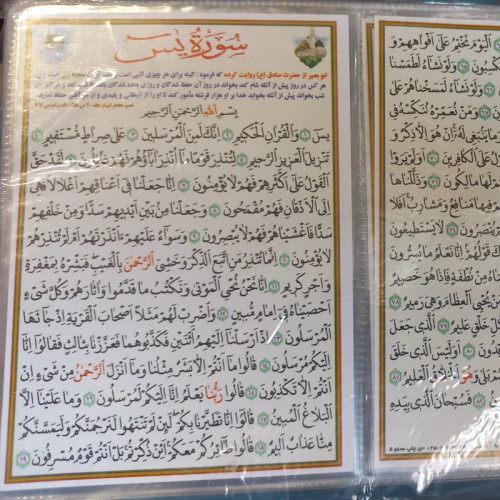 سورة يس
ابو بصير از حضرت صادق (ع) روایت کرده که فرمود : البته برای هر چیزی قلبی است
هر کس در روز پیش از آنکه شام کند بخواند در روز آن حفظ شدگان و روزی داده شدگان
شب بخواند پیش از آنکه بخوابد خدا بر او هزار فرشته مأمور کند تا او را از
بِسْمِ اللهِ الرَّحْمٰنِ الرَّحيمِ
يس ﴿١﴾ وَالْقُرْانِ الْحَكيمِ ﴿٢﴾ اِنَّكَ لَمِنَ الْمُرْسَلينَ ﴿٣﴾ عَلى صِراطٍ مُسْتَقيمٍ ﴿٤﴾
تَنْزيلَ الْعَزيزِ الرَّحيمِ ﴿٥﴾ لِتُنْذِرَ قَوْمًا ما اُنْذِرَ اباؤُهُمْ فَهُمْ غافِلُونَ ﴿٦﴾ لَقَدْ حَقَّ
الْقَوْلُ عَلى اَكْثَرِهِمْ فَهُمْ لا يُؤْمِنُونَ ﴿٧﴾ اِنّا جَعَلْنا فى اَعْناقِهِمْ اَغْلالًا فَهِىَ
اِلَى الْاَذْقانِ فَهُمْ مُقْمَحُونَ ﴿٨﴾ وَجَعَلْنا مِنْ بَيْنِ اَيْديهِمْ سَدًّا وَمِنْ خَلْفِهِمْ
سَدًّا فَاَغْشَيْناهُمْ فَهُمْ لا يُبْصِرُونَ ﴿٩﴾ وَسَواءٌ عَلَيْهِمْ ءَاَنْذَرْتَهُمْ اَمْ لَمْ تُنْذِرْهُمْ
لا يُؤْمِنُونَ ﴿١٠﴾ اِنَّما تُنْذِرُ مَنِ اتَّبَعَ الذِّكْرَ وَخَشِىَ الرَّحْمٰنَ بِالْغَيْبِ فَبَشِّرْهُ بِمَغْفِرَةٍ
وَاَجْرٍ كَريمٍ ﴿١١﴾ اِنّا نَحْنُ نُحْيِى الْمَوْتى وَنَكْتُبُ ما قَدَّمُوا وَاثارَهُمْ وَكُلَّ شَىْءٍ
اَحْصَيْناهُ فى اِمامٍ مُبينٍ ﴿١٢﴾ وَاضْرِبْ لَهُمْ مَثَلًا اَصْحابَ الْقَرْيَةِ اِذْ جاءَهَا
الْمُرْسَلُونَ ﴿١٣﴾ اِذْ اَرْسَلْنا اِلَيْهِمُ اثْنَيْنِ فَكَذَّبُوهُما فَعَزَّزْنا بِثالِثٍ فَقالُوا اِنّا
اِلَيْكُمْ مُرْسَلُونَ ﴿١٤﴾ قالُوا ما اَنْتُمْ اِلّا بَشَرٌ مِثْلُنا وَما اَنْزَلَ الرَّحْمٰنُ مِنْ شَىْءٍ اِنْ
اَنْتُمْ اِلّا تَكْذِبُونَ ﴿١٥﴾ قالُوا رَبُّنا يَعْلَمُ اِنّا اِلَيْكُمْ لَمُرْسَلُونَ ﴿١٦﴾ وَما عَلَيْنا اِلَّا
الْبَلاغُ الْمُبينُ ﴿١٧﴾ قالُوا اِنّا تَطَيَّرْنا بِكُمْ لَئِنْ لَمْ تَنْتَهُوا لَنَرْجُمَنَّكُمْ وَلَيَمَسَّنَّكُمْ
مِنّا عَذابٌ اَليمٌ ﴿١٨﴾ قالُوا طائِرُكُمْ مَعَكُمْ اَئِنْ ذُكِّرْتُمْ بَلْ اَنْتُمْ قَوْمٌ مُسْرِفُونَ ﴿١٩﴾
اَلْيَوْمَ نَخْتِمُ عَلى اَفْواهِهِمْ وَ
وَلَوْ نَشاءُ لَطَمَسْنا
وَلَوْ نَشاءُ لَمَسَخْناهُمْ عَلى
وَمَنْ نُعَمِّرْهُ نُنَكِّسْهُ فِى
ما يَنْبَغى لَهُ اِنْ هُوَ اِلّا ذِكْرٌ وَ
عَلَى الْكافِرينَ ﴿٧٠﴾ اَوَلَمْ يَرَوْا
لَها مالِكُونَ ﴿٧١﴾ وَذَلَّلْناها
فيها مَنافِعُ وَمَشارِبُ اَفَلا
يُنْصَرُونَ ﴿٧٤﴾ لا يَسْتَطيعُونَ
قَوْلُهُمْ اِنّا نَعْلَمُ ما يُسِرُّونَ
مِنْ نُطْفَةٍ فَاِذا هُوَ خَصيمٌ
يُحْيِى الْعِظامَ وَهِىَ رَميمٌ ﴿٧٨﴾
خَلْقٍ عَليمٌ ﴿٧٩﴾ اَلَّذى جَعَلَ
﴿٨٠﴾ اَوَلَيْسَ الَّذى خَلَقَ
بَلى وَهُوَ الْخَلّاقُ الْعَليمُ ﴿٨١﴾
﴿٨٢﴾ فَسُبْحانَ الَّذى بِيَدِهِ